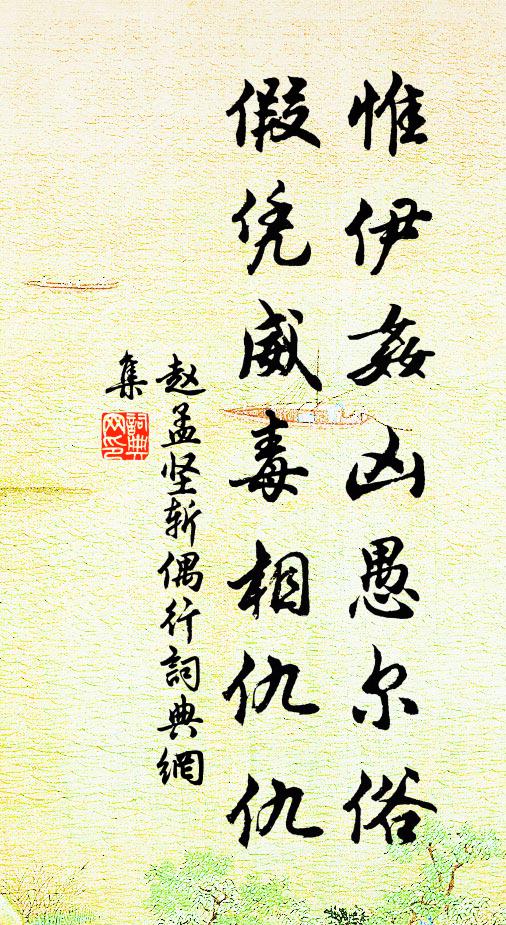 惟伊姦凶愚尔俗
假凭威毒相仇仇
赵孟坚斩偶行詞典網
集
詞典
网印